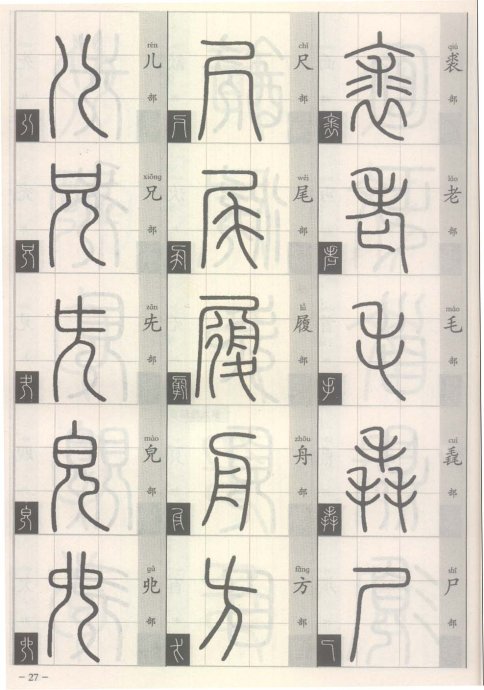 qiú
裘
部
lǎo
老
部
máo
毛
部
cuì
毳
部
shī
尸
部
chǐ
尺
部
wěi
尾
部
lǚ
履
部
zhōu
舟
部
fāng
方
部
rén
儿
部
xiōng
兄
部
zān
兂
部
mào
皃
部
gǔ
𠑹
部
– 27 –